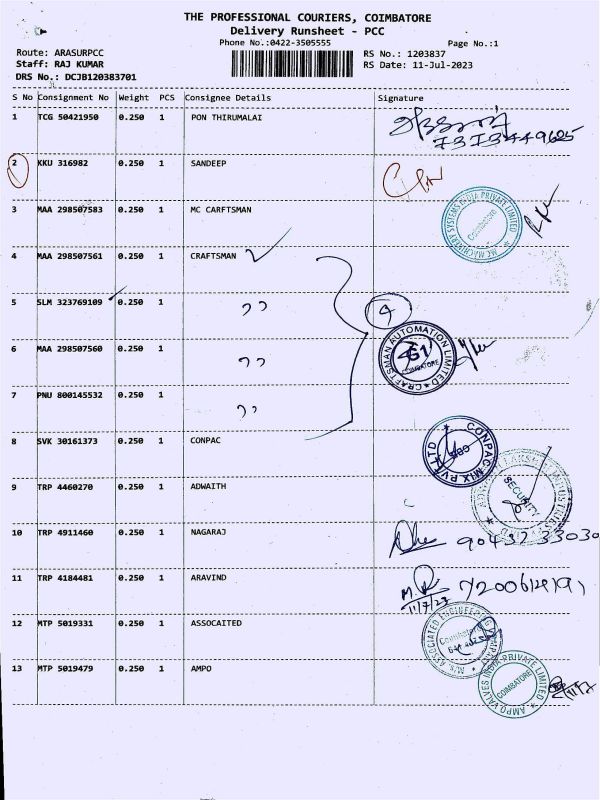 THE PROFESSIONAL COURIERS, COIMBATORE
Delivery Runsheet - PCC
Phone No.:0422-3505555 Page No.:1
Route: ARASURPCC RS No.: 1203837
Staff: RAJ KUMAR RS Date: 11-Jul-2023
DRS No.: DCJB120383701
S No Consignment No Weight PCS Consignee Details Signature
1 TCG 50421950 0.250 1 PON THIRUMALAI
7373449625
2 KKU 316982 0.250 1 SANDEEP
3 MAA 298507583 0.250 1 MC CARFTSMAN
MC MACHINERY SYSTEMS INDIA PRIVATE LIMITED
Coimbatore
4 MAA 298507561 0.250 1 CRAFTSMAN
5 SLM 323769109 0.250 1 ,,
4
6 MAA 298507560 0.250 1 ,,
CRAFTSMAN AUTOMATION LIMITED
COIMBATORE
7 PNU 800145532 0.250 1 ,,
8 SVK 30161373 0.250 1 CONPAC
CONPAC-MIX PVT LTD
9 TRP 4460270 0.250 1 ADWAITH
SECURITY
10 TRP 4911460 0.250 1 NAGARAJ
90432 33030
11 TRP 4184481 0.250 1 ARAVIND
11/7/23
12 MTP 5019331 0.250 1 ASSOCAITED
M/s. ASSOCIATED ENGINEERING
Coimbatore
13 MTP 5019479 0.250 1 AMPO
AMPO VALVES INDIA PRIVATE LIMITED
COIMBATORE